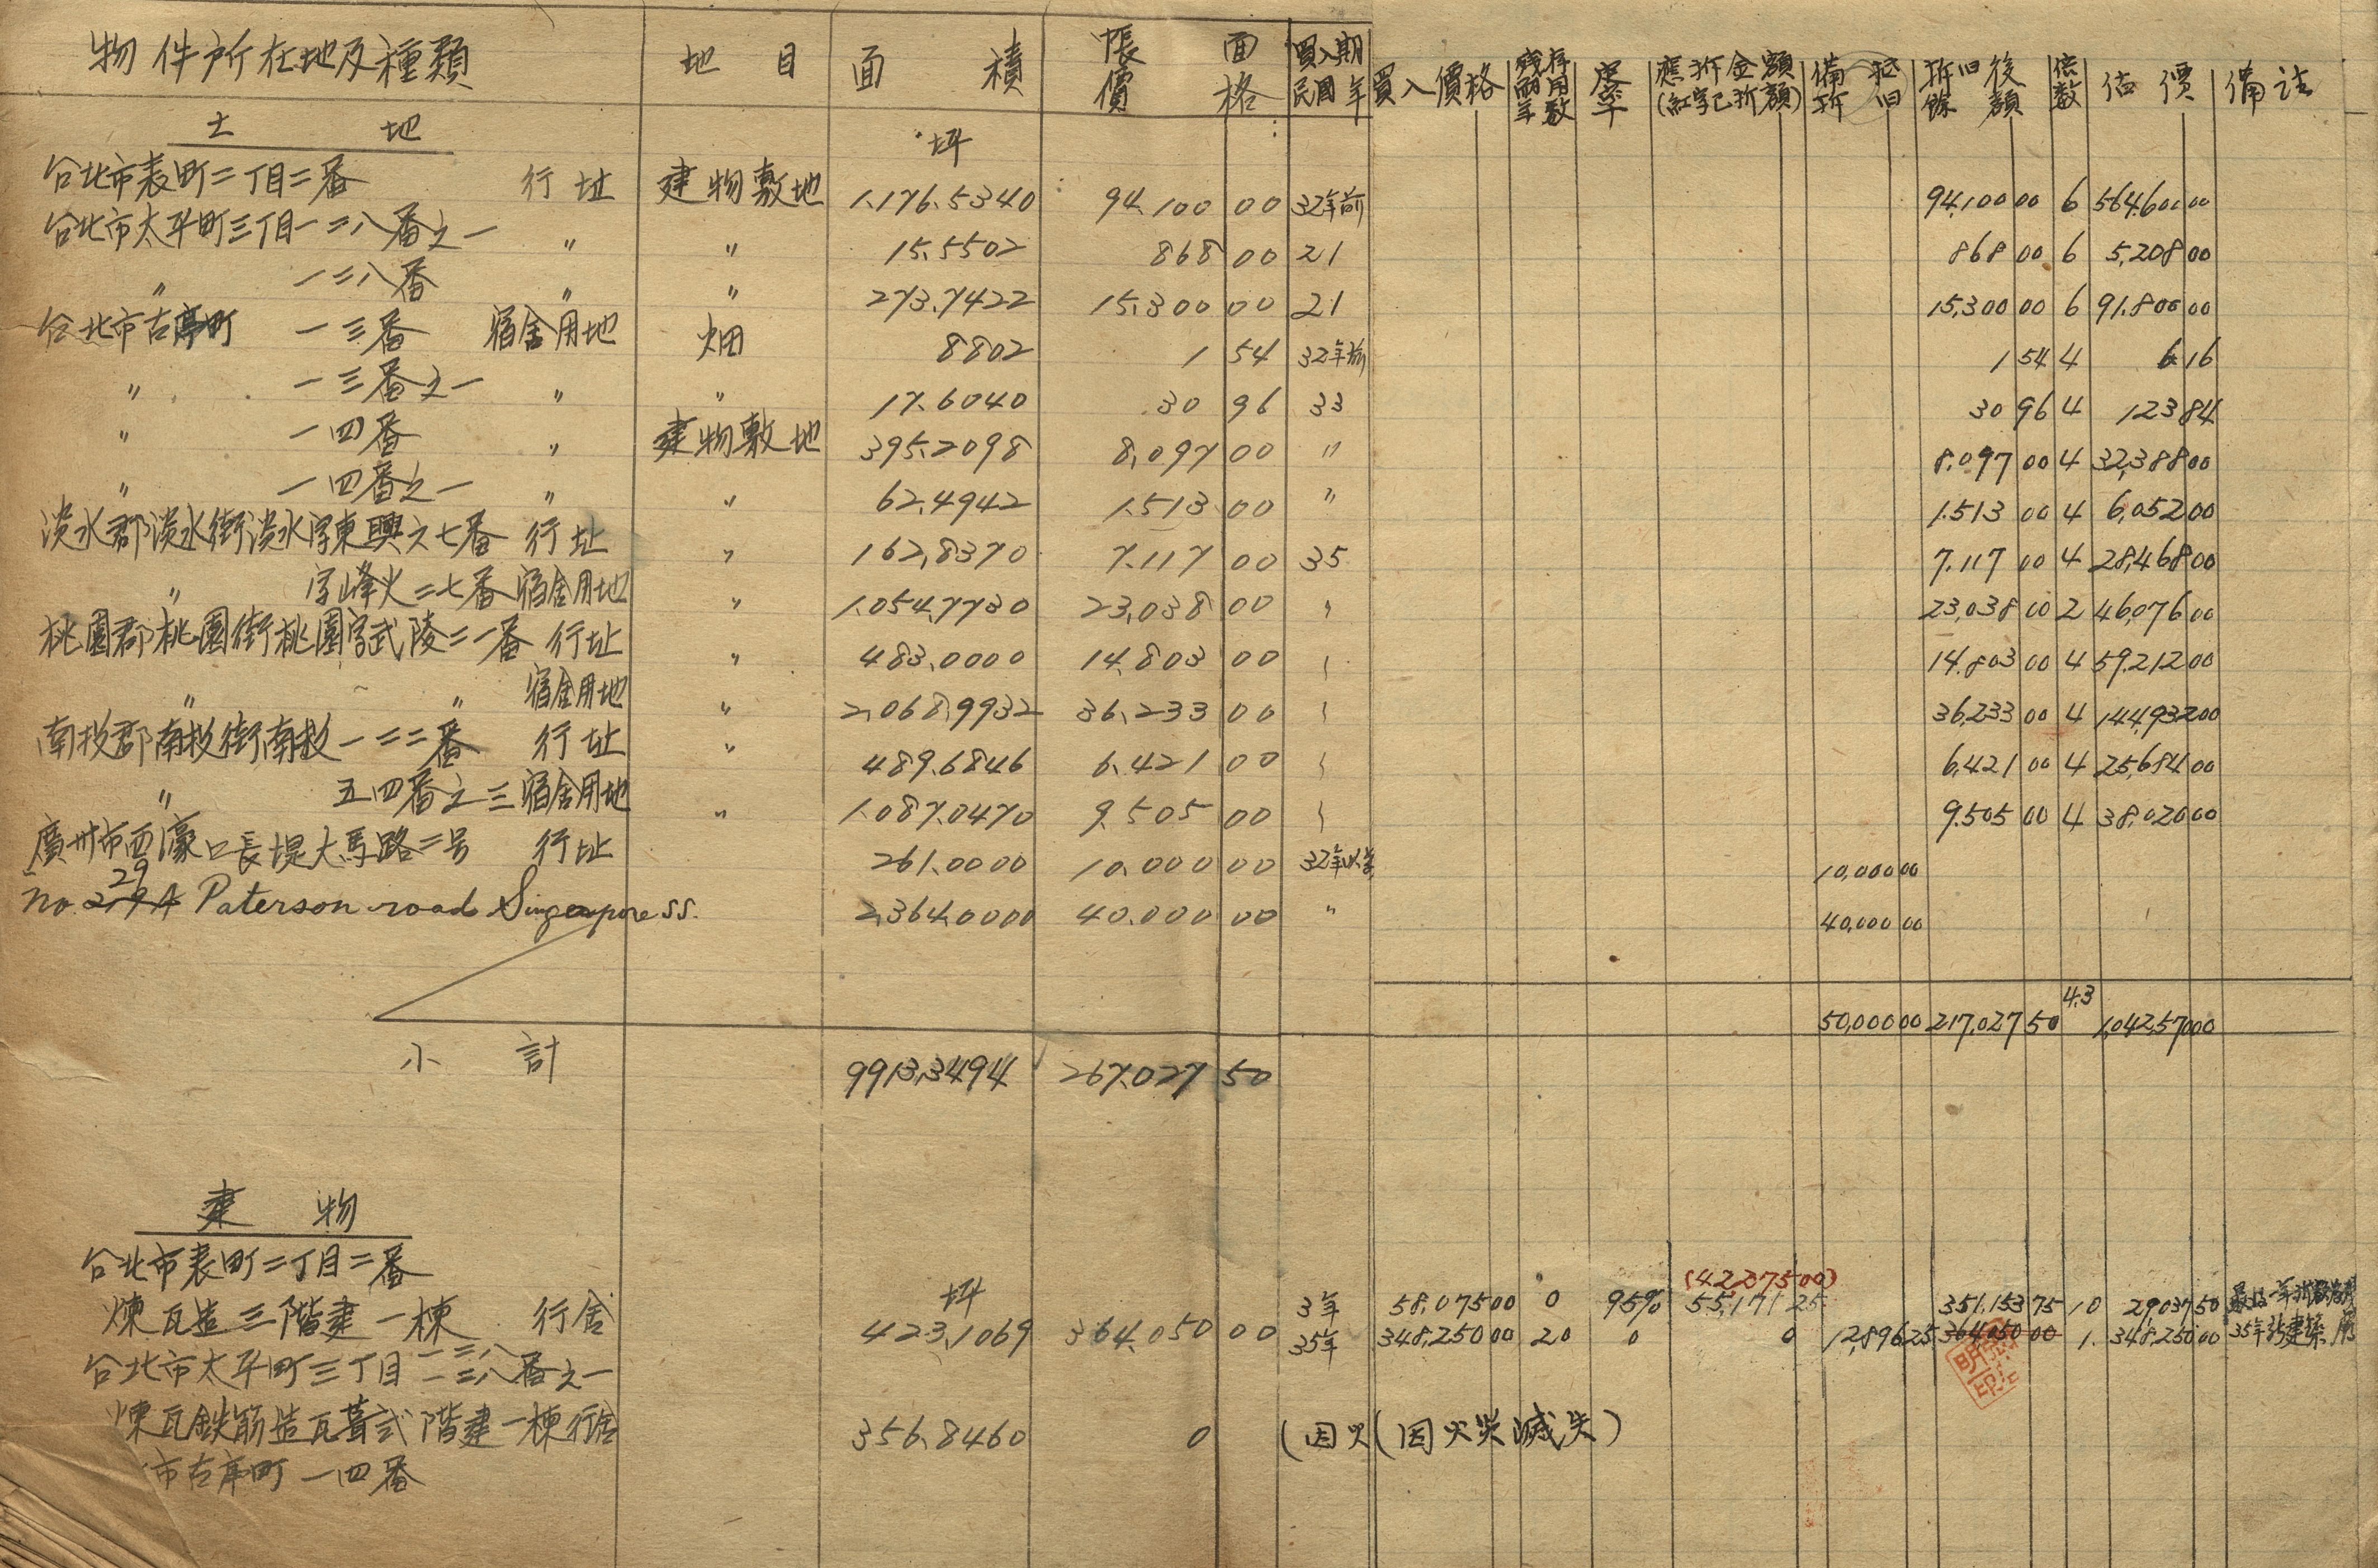 物件所在地及種類 地目 面積 帳面價格 買入期民國年 買入價格 残存耐用年數 應折金額(紅字已折額) 備折 折旧後餘額 倍數 估價 備註
土地 坪
台北市表町二丁目二番 行址 建物敷地 1,176.5340 94,100 00 32年前 94,100 00 6 564,600 00
台北市太平町三丁目一二八番之一 〃 〃 15.5502 868 00 21 868 00 6 5,208 00
〃 一二八番 〃 〃 273.7422 15,300 00 21 15,300 00 6 91,800 00
台北市古亭町 一三番 宿舍用地 畑 8802 1 54 32年前 1 54 4 6 16
〃 一三番之一 〃 〃 17.6040 30 96 33 30 96 4 123 84
〃 一四番 〃 建物敷地 395.2098 8,097 00 〃 8,097 00 4 32,388 00
〃 一四番之一 〃 〃 62.4942 1,513 00 〃 1,513 00 4 6,052 00
淡水郡淡水街淡水字東興六七番 行址 〃 162.8370 7,117 00 35 7,117 00 4 28,468 00
〃 字烽火二七番 宿舍用地 〃 1,054.7730 23,038 00 〃 23,038 00 2 46,076 00
桃園郡桃園街桃園字武陵二一番 行址 〃 483.0000 14,803 00 〃 14,803 00 4 59,212 00
〃 〃 宿舍用地 〃 2,068.9932 36,233 00 〃 36,233 00 4 144,932 00
南投郡南投街南投一二二番 行址 〃 489.6846 6,421 00 〃 6,421 00 4 25,684 00
〃 五四番之三 宿舍用地 〃 1,087.0470 9,505 00 〃 9,505 00 4 38,020 00
廣州市西濠口長堤大馬路二号 行址 261.0000 10,000 00 32年以前 10,000 00
No. 29 Paterson road Singapore S.S. 2,364.0000 40,000 00 〃 40,000 00
50,000 00 217,027 50 4.3 1,042,570 00
小計 9913.3494 267,027 50
建物
台北市表町二丁目二番 坪 (42,275 00)
煉瓦造三階建一棟 行舍 423.1069 364,050 00 3年 58,075 00 0 95% 55,171 25 351,153 75 10 29,037 50
35年 348,250 00 20 0 0 12,896 25 364,050 00 1. 348,250 00 35年新建築
台北市太平町三丁目一二八 一二八番之一
煉瓦鉄筋造瓦葺弍階建一棟行舍 356.8460 0 (因火(因火災滅失)
市古亭町 一四番